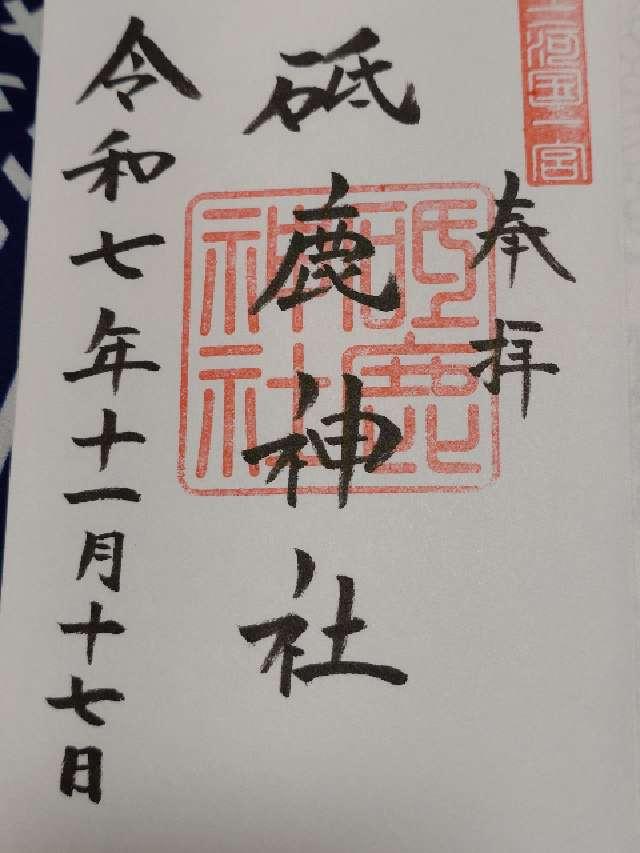 三河国一宮
奉拝
砥鹿神社
砥鹿神社
令和七年十一月十七日